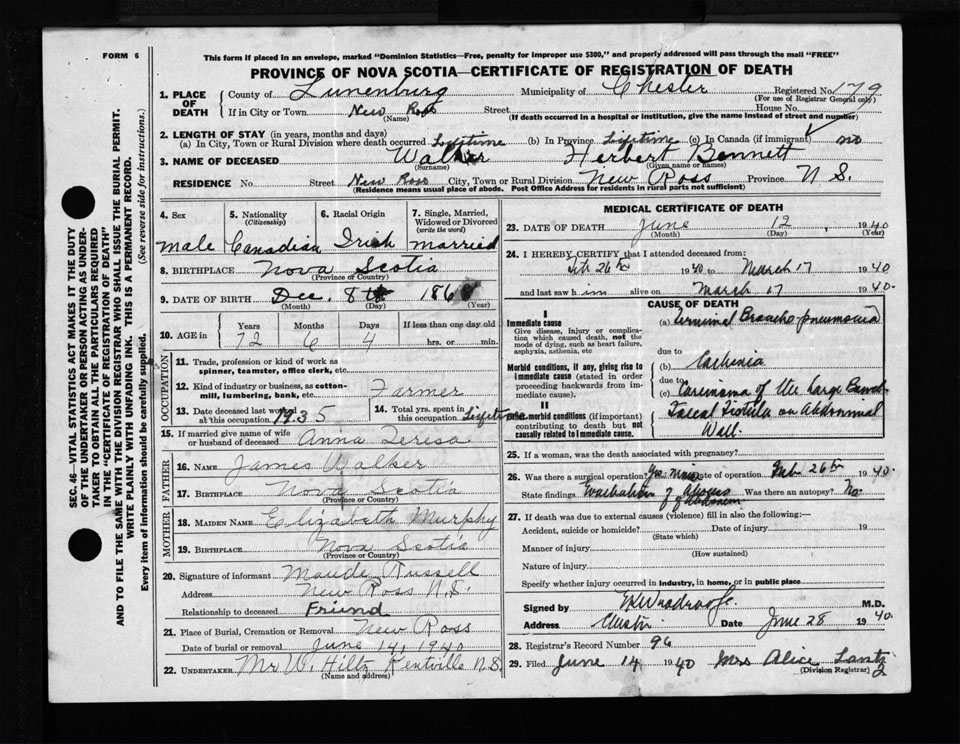 FORM 6
This form if placed in an envelope, marked "Dominion Statistics—Free, penalty for improper use $300," and properly addressed will pass through the mail "FREE"
PROVINCE OF NOVA SCOTIA—CERTIFICATE OF REGISTRATION OF DEATH
1. PLACE OF DEATH County of Lunenburg Municipality of Chester Registered No. 179
(For use of Registrar General only)
If in City or Town New Ross Street House No.
(Name) (If death occurred in a hospital or institution, give the name instead of street and number)
2. LENGTH OF STAY (in years, months and days)
(a) In City, Town or Rural Division where death occurred Lifetime (b) In Province Lifetime (c) In Canada (if immigrant) no
3. NAME OF DECEASED Walker Herbert Bennett
(Surname) (Given name or names)
RESIDENCE No. Street New Ross City, Town or Rural Division New Ross Province N S.
(Residence means usual place of abode. Post Office Address for residents in rural parts not sufficient)
4. Sex 5. Nationality (Citizenship) 6. Racial Origin 7. Single, Married, Widowed or Divorced (write the word)
male Canadian Irish married
8. BIRTHPLACE Nova Scotia
(Province or Country)
9. DATE OF BIRTH Dec. 8th 186
(Month) (Day) (Year)
10. AGE in Years Months Days If less than one day old
72 6 4 hrs. or min.
OCCUPATION
11. Trade, profession or kind of work as spinner, teamster, office clerk, etc.
12. Kind of industry or business, as cotton-mill, lumbering, bank, etc. Farmer
13. Date deceased last worked at this occupation 1935 14. Total yrs. spent in this occupation Lifetime
15. If married give name of wife or husband of deceased Anna Teresa
FATHER
16. NAME James Walker
17. BIRTHPLACE Nova Scotia
(Province or Country)
MOTHER
18. MAIDEN NAME Elizabeth Murphy
19. BIRTHPLACE Nova Scotia
(Province or Country)
20. Signature of informant Maude Russell
Address New Ross N.S.
Relationship to deceased Friend
21. Place of Burial, Cremation or Removal New Ross
Date of burial or removal June 14, 1940
22. UNDERTAKER Mr W. Hiltz Kentville N.S.
(Name and address)
MEDICAL CERTIFICATE OF DEATH
23. DATE OF DEATH June 12, 1940
(Month) (Day) (Year)
24. I HEREBY CERTIFY that I attended deceased from:
Feb 26th 1940 to March 17 1940
and last saw him alive on March 17 1940.
CAUSE OF DEATH
I
Immediate cause
Give disease, injury or complication which caused death, not the mode of dying, such as heart failure, asphyxia, asthenia, etc
(a) Terminal Broncho pneumonia
due to
Morbid conditions, if any, giving rise to immediate cause (stated in order proceeding backwards from immediate cause).
(b) Cachexia
due to
(c) Carcinoma of the Large Bowel
II
Other morbid conditions (if important) contributing to death but not causally related to immediate cause.
Faecal Fistula on Abdominal
Wall.
25. If a woman, was the death associated with pregnancy?
26. Was there a surgical operation? Yes minor Date of operation Feb. 26th 1940.
State findings Evacuation of Abscess of Abdomen Was there an autopsy? No
27. If death was due to external causes (violence) fill in also the following:—
Accident, suicide or homicide? Date of injury 19
(State which)
Manner of injury
(How sustained)
Nature of injury
Specify whether injury occurred in industry, in home, or in public place
Signed by M.D.
Address Chester Date June 28 1940.
28. Registrar's Record Number 96
29. Filed June 14 1940 Mrs Alice Lantz
(Division Registrar)
2
SEC. 46—VITAL STATISTICS ACT MAKES IT THE DUTY OF THE UNDERTAKER OR PERSON ACTING AS UNDERTAKER TO OBTAIN ALL THE PARTICULARS REQUIRED IN THE "CERTIFICATE OF REGISTRATION OF DEATH" AND TO FILE THE SAME WITH THE DIVISION REGISTRAR WHO SHALL ISSUE THE BURIAL PERMIT.
WRITE PLAINLY WITH UNFADING INK. THIS IS A PERMANENT RECORD.
Every item of information should be carefully supplied. (See reverse side for instructions.)